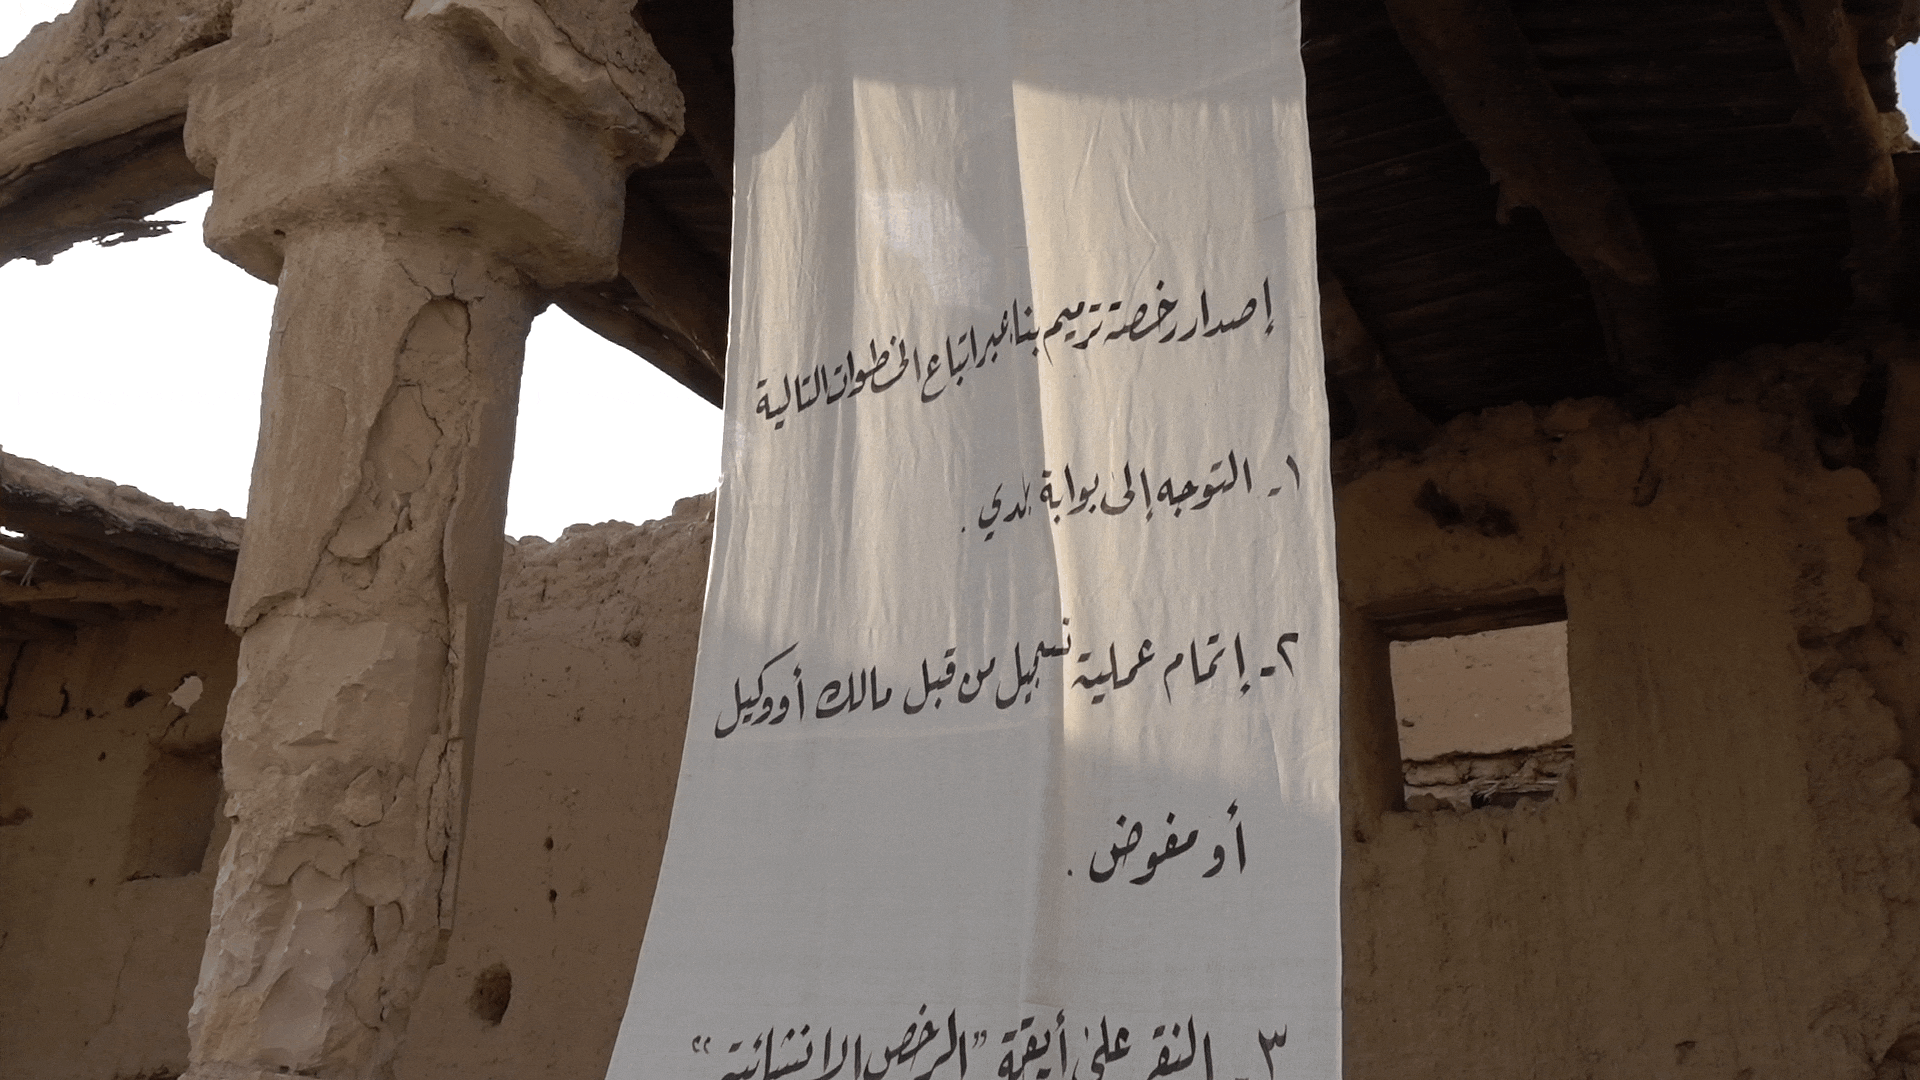 إصدار رخصة ترميم بناء عبر اتباع الخطوات التالية
١- التوجه إلى بوابة بلدي .
٢- إتمام عملية تسجيل من قبل مالك أو وكيل
أو مفوض .
٣- النقر على أيقونة "الرخص الانشائية"